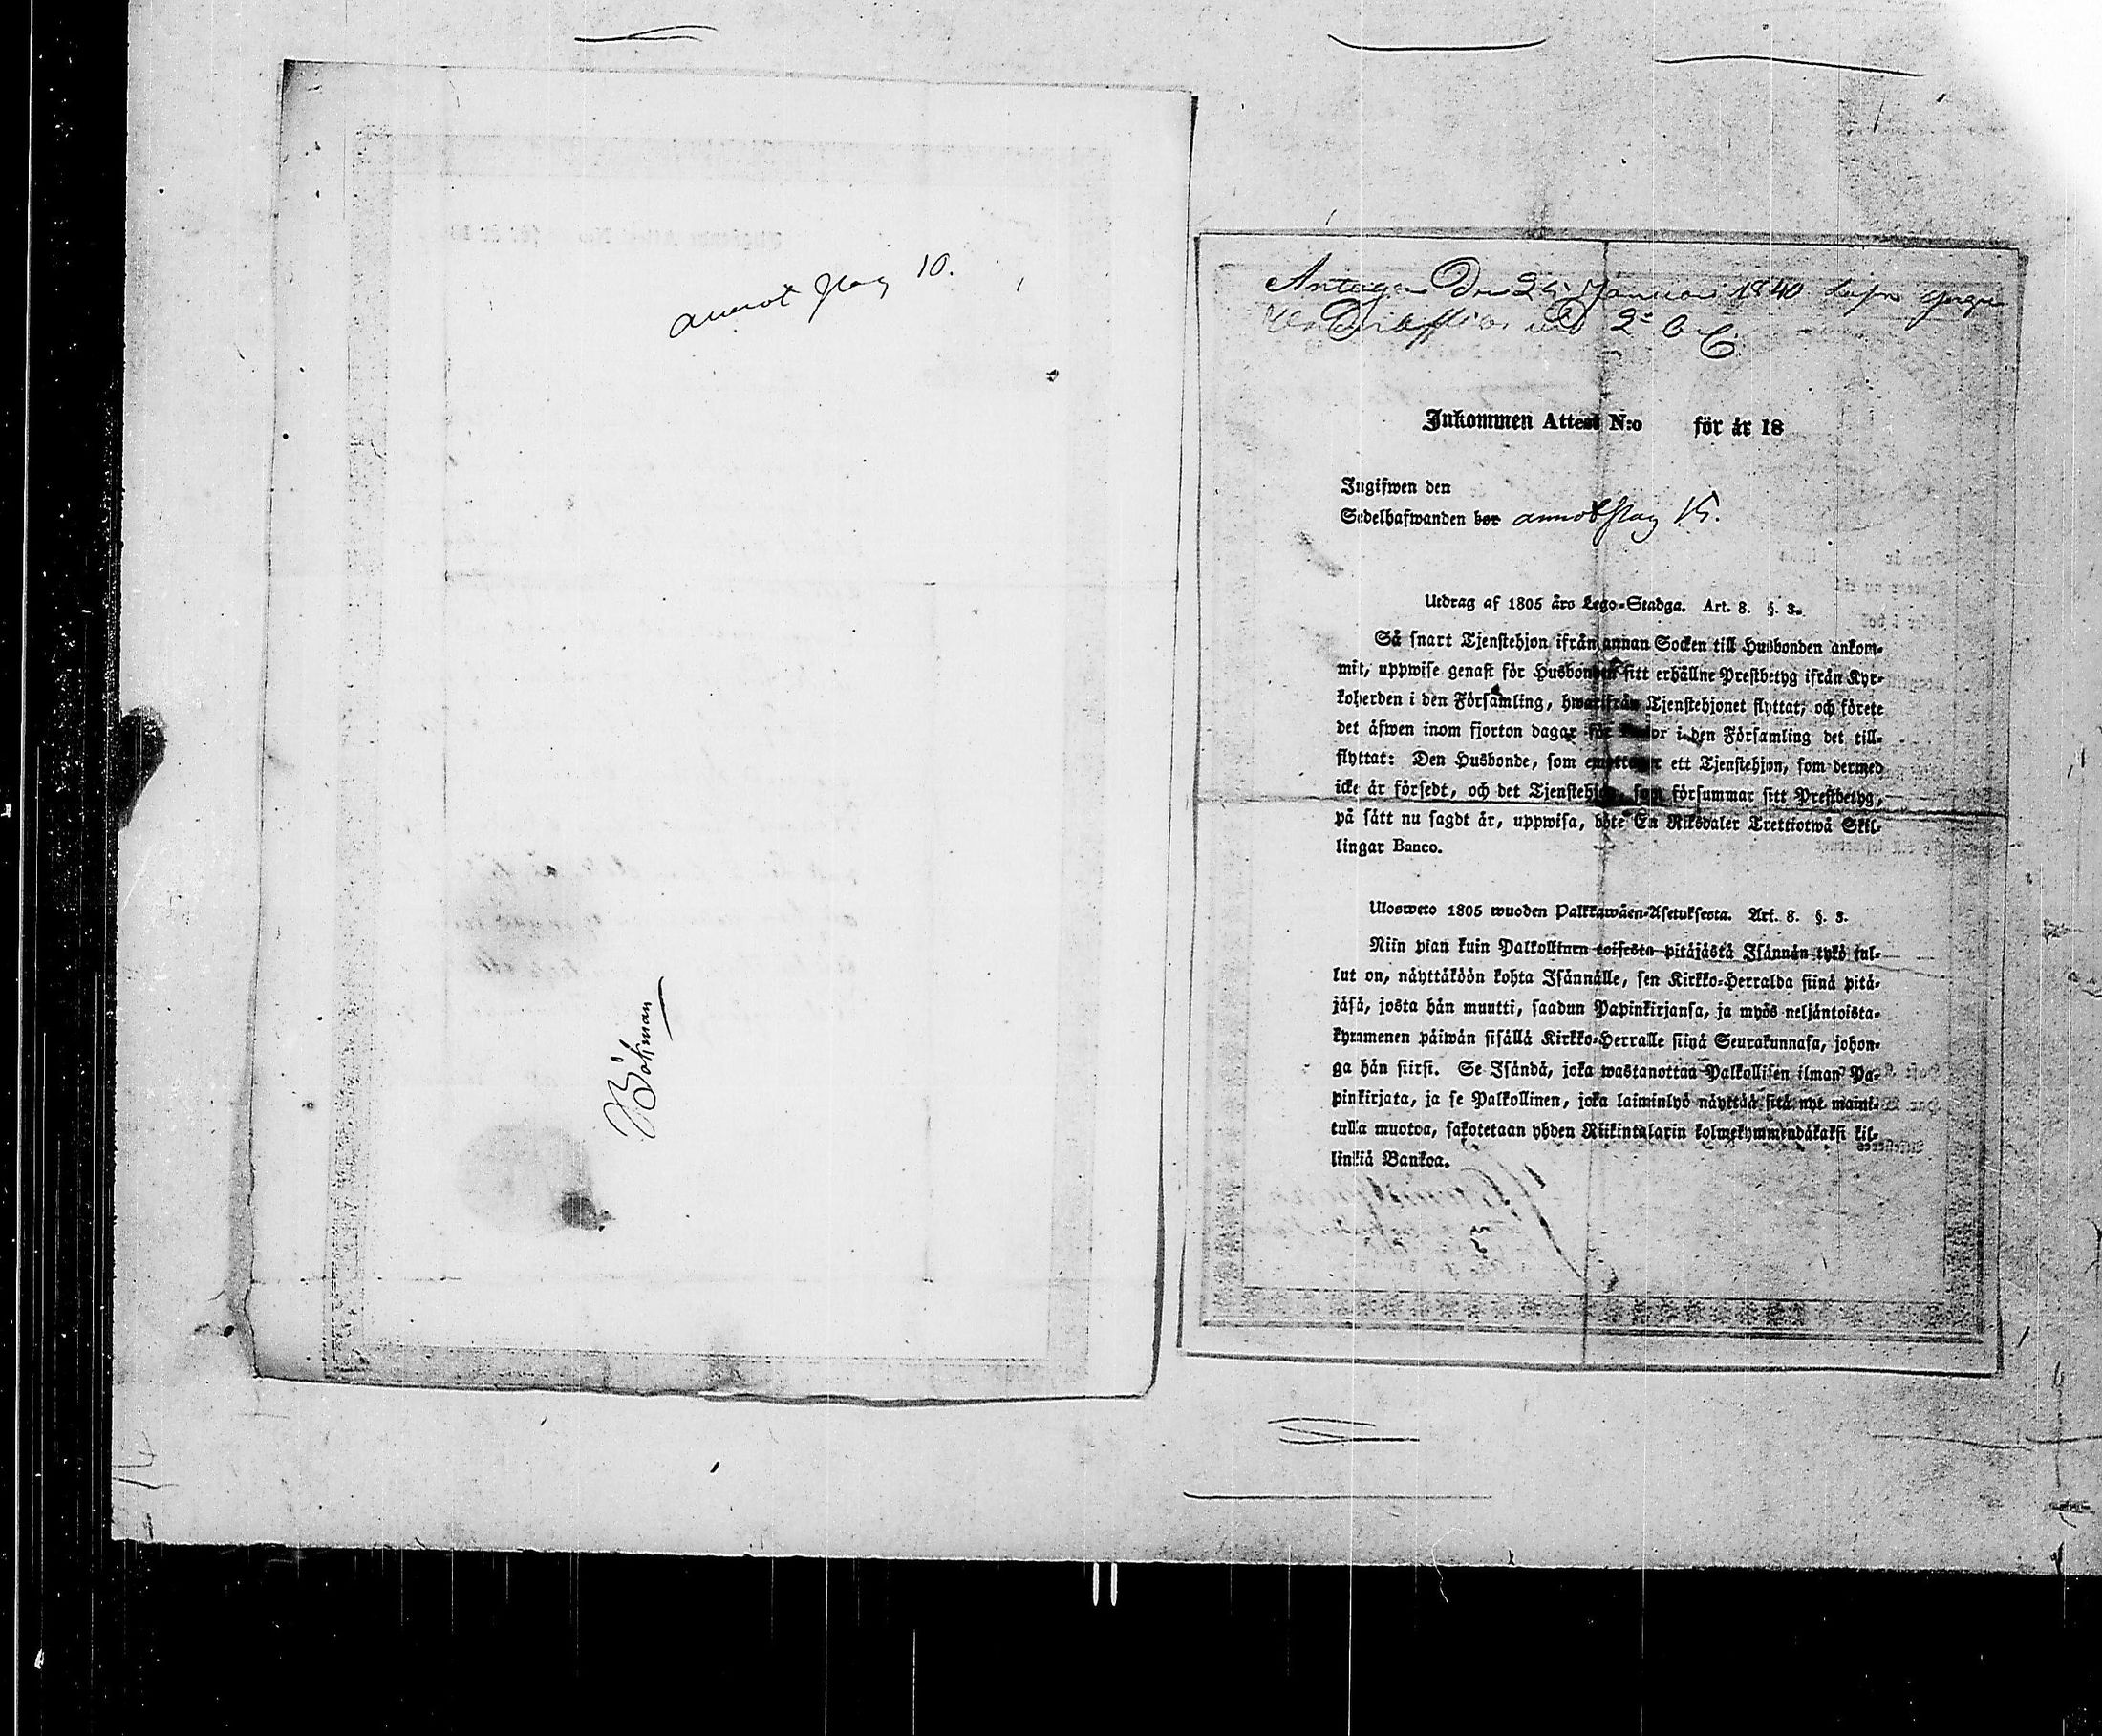 annot pag 10.
Böökman
Antagen Den 25 Januari 1840
2:
Inkommen Attest N:o för år 18
Ingifwen den
Sedelhafwanden bor annot pag 15.
Utdrag af 1805 års Lego-Stadga. Art. 8. §. 3.
Så snart Tjenstehjon ifrån annan Socken till Husbonden ankom-
mit, uppwise genast för Husbonden sitt erhållne Prestbetyg ifrån Kyr-
koherden i den Församling, hwarifrån Tjenstehjonet flyttat, och förete
det äfwen inom fjorton dagar för i den Församling det till-
flyttat: Den Husbonde, som emottager ett Tjenstehjon, som dermed
icke är försedt, och det Tjenstehjon, som försummar sitt Prestbetyg,
på sätt nu sagdt är, uppwisa, böte En Riksdaler Trettiotwå Skil-
lingar Banco.
Ulosweto 1805 wuoden Palkkawäen-Asetuksesta. Art. 8. §. 3.
Niin pian kuin Palkollinen toisesta pitäjästä Isännän tykö tul-
lut on, näyttäköön kohta Isännälle, sen Kirkko-Herralda siinä pitä-
jäsä, josta hän muutti, saadun Papinkirjansa, ja myös neljäntoista-
kymmenen päiwän sisällä Kirkko-Herralle siinä Seurakunnasa, johon-
ga hän siirsi. Se Isändä, joka wastanottaa Palkollisen ilman Pa-
pinkirjata, ja se Palkollinen, joka laiminlyö näyttää sitä nyt maini-
tulla muotoa, sakotetaan yhden Riikintalarin kolmekymmendäkaksi kil-
linkiä Bankoa.